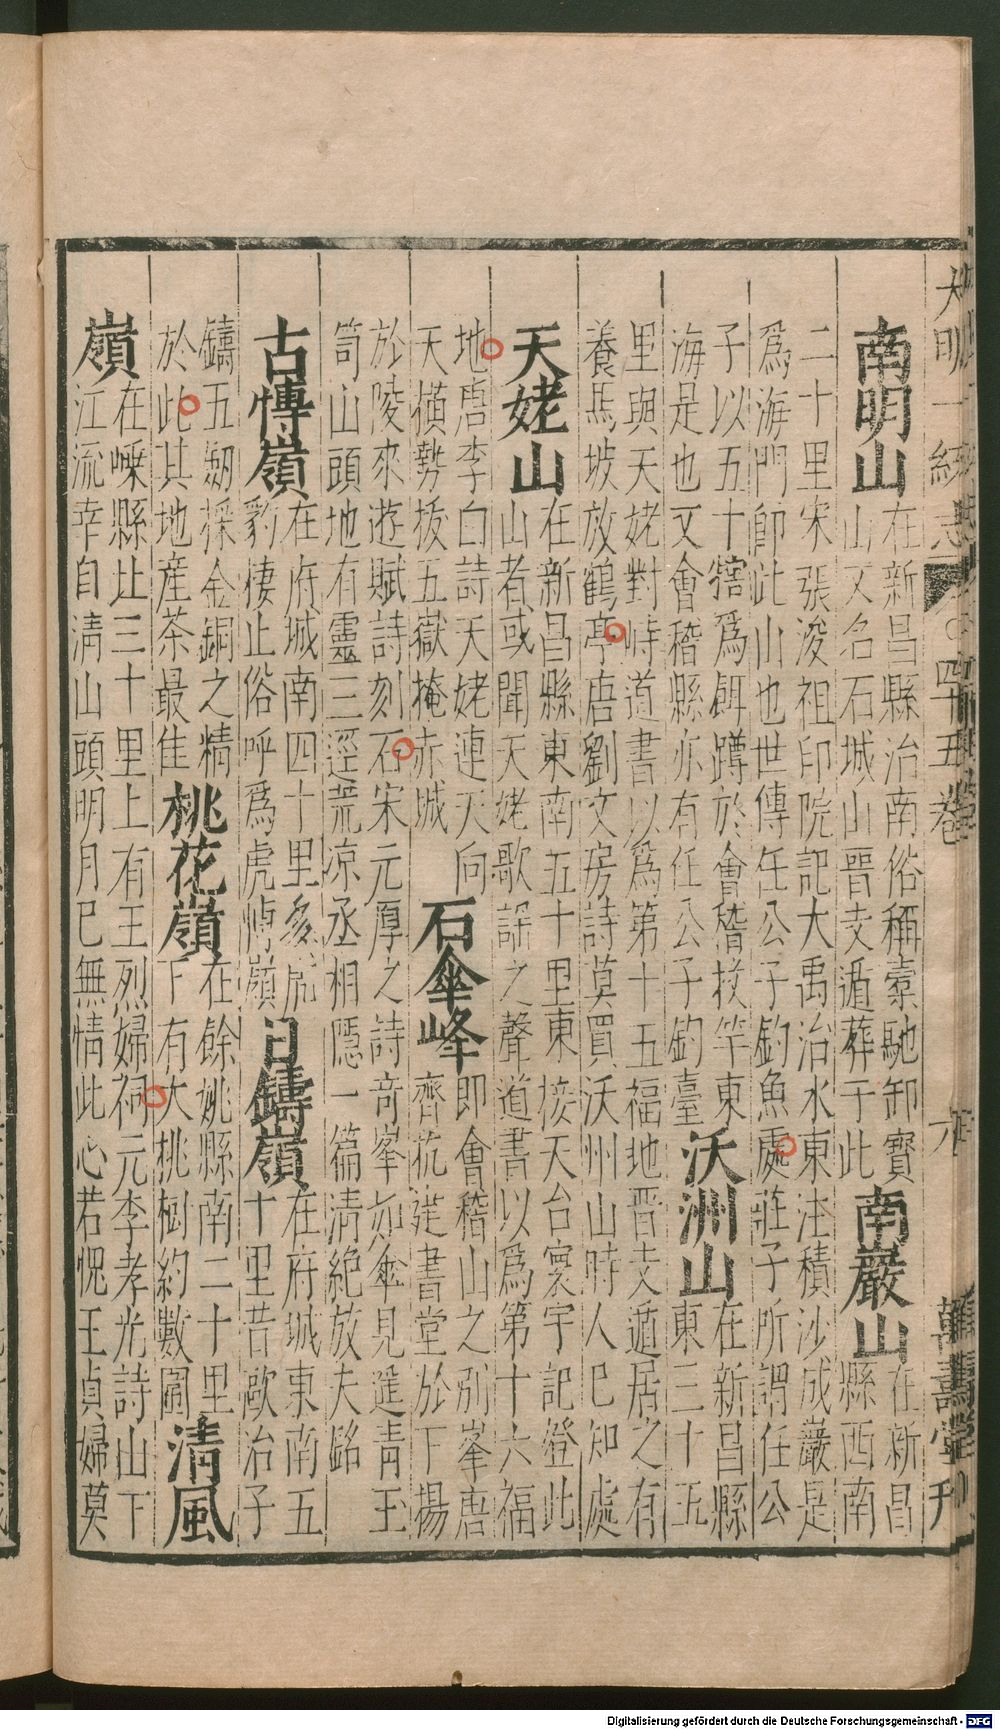 大明一統志 四十五卷 六 萬壽堂刊
南明山 在新昌縣治南俗稱槖馳卸寶
山又名石城山晉支遁葬于此
南巖山 在新昌
縣西南
二十里宋張浚祖印院記大禹治水東注積沙成巖是
爲海門卽此山也世傳任公子釣魚處莊子所謂任公
子以五十犗爲餌蹲於會稽投竿東
海是也又會稽縣亦有任公子釣臺
沃洲山 在新昌縣
東三十五
里與天姥對峙道書以爲第十五福地晉支遁居之有
養馬坡放鶴亭唐劉文房詩莫買沃州山時人已知處
天姥山 在新昌縣東南五十里東接天台寰宇記登此
山者或聞天姥歌謡之聲道書以爲第十六福
地唐李白詩天姥連天向
天横勢拔五嶽掩赤城
石傘峰 即會稽山之別峯唐
齊抗建書堂於下揚
於陵來遊賦詩刻石宋元厚之詩奇峯如傘見遥靑玉
笥山頭地有靈三逕荒凉丞相隱一篇清絶放夫銘
古博嶺 在府城南四十里多虎
豹棲止俗呼爲虎博嶺
日鑄嶺 在府城東南五
十里昔歐冶子
鑄五劒採金銅之精
於此其地産茶最佳
桃花嶺 在餘姚縣南二十里
下有大桃樹約數圍
清風
嶺 在嵊縣北三十里上有王烈婦祠元李孝光詩山下
江流幸自清山頭明月已無情此心若愧王貞婦莫
Digitalisierung gefördert durch die Deutsche Forschungsgemeinschaft - DFG